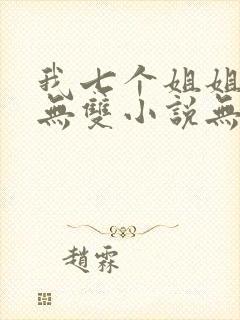 我七个姐姐
無雙小說無
趙霖